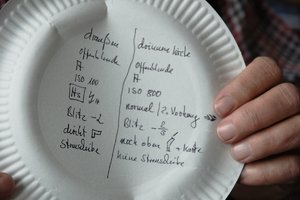 draußen
Offenblende
A
ISO 100
Hs
Blitz -2
direkt
Streuscheibe
Offenblende
A
ISO 800
normal / 2. Vorhang
Blitz
nach oben + Karte
keine Streuscheibe